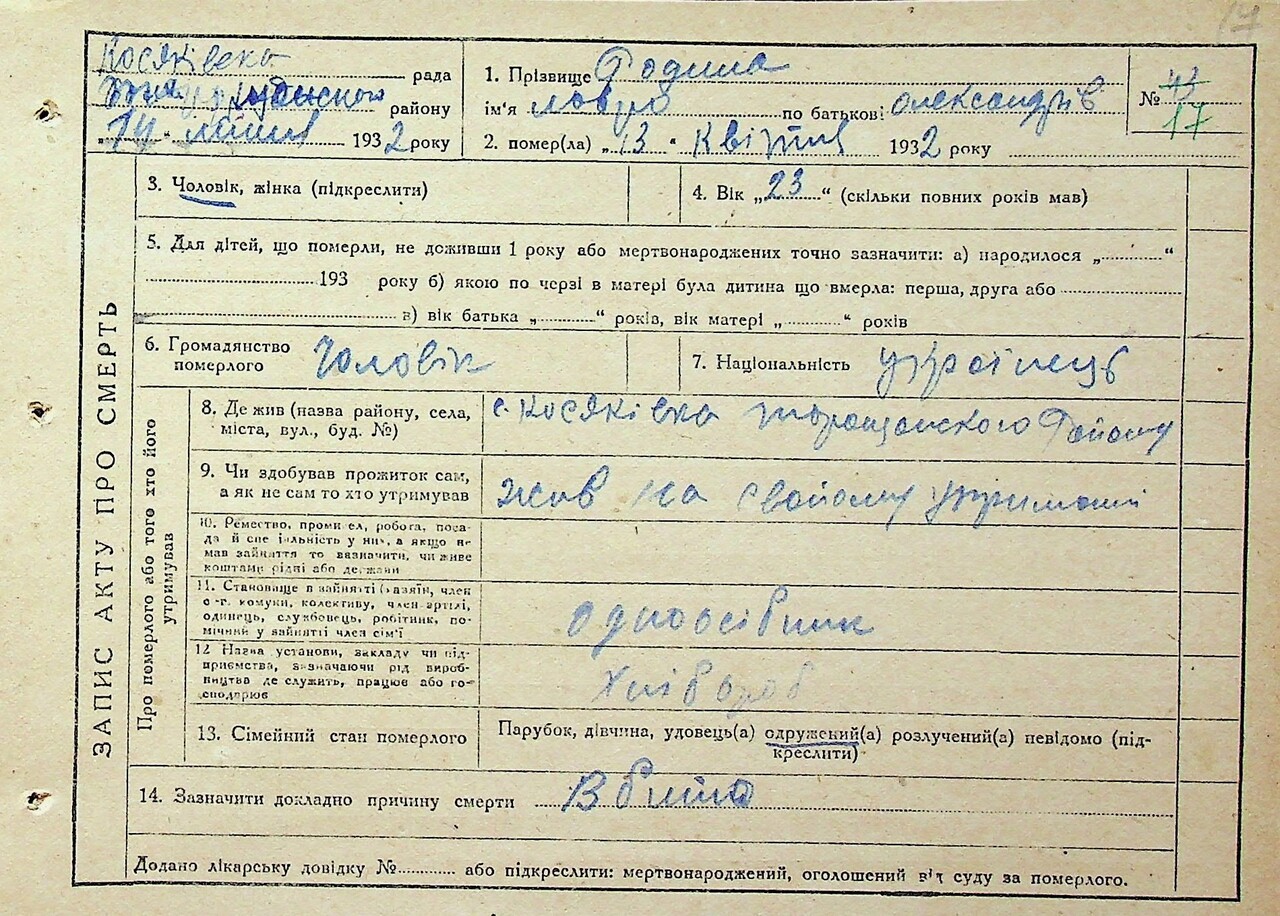 17
Косяківська рада
Таращанського району
„14“ 1932 року
1. Прізвище Родина
ім'я Лавро по батькові Олександрів
2. помер(ла) „13“ Квітня 1932 року
№ 43
17
3. Чоловік, жінка (підкреслити)
4. Вік „23“ (скільки повних років мав)
5. Для дітей, що померли, не доживши 1 року або мертвонароджених точно зазначити: а) народилося „ “
193 року б) якою по черзі в матері була дитина що вмерла: перша, друга або
в) вік батька „ “ років, вік матері „ “ років
6. Громадянство
померлого
Чоловік
7. Національність українець
ЗАПИС АКТУ ПРО СМЕРТЬ
Про померлого або того хто його
утримував
8. Де жив (назва району, села,
міста, вул., буд. №)
с. Косяківка Таращанського Району
9. Чи здобував прожиток сам,
а як не сам то хто утримував
жив на свойому утриманні
10. Ремество, промисел, робота, поса-
да й спеціяльність у них, а якщо не
мав зайняття то зазначити, чи живе
коштами рідні або держави
11. Становище в зайнятті (хазяїн, член
с.-г. комуни, колективу, член артілі,
одинець, службовець, робітник, по-
мічний у зайнятті член сім'ї
одноосібник
12 Назва установи, закладу чи під-
приємства, зазначаючи рід вироб-
ництва де служить, працює або го-
сподарює
Хлібороб
13. Сімейний стан померлого
Парубок, дівчина, удовець(а) одружений(а) розлучений(а) невідомо (під-
креслити)
14. Зазначити докладно причину смерти
Додано лікарську довідку № або підкреслити: мертвонароджений, оголошений від суду за померлого.